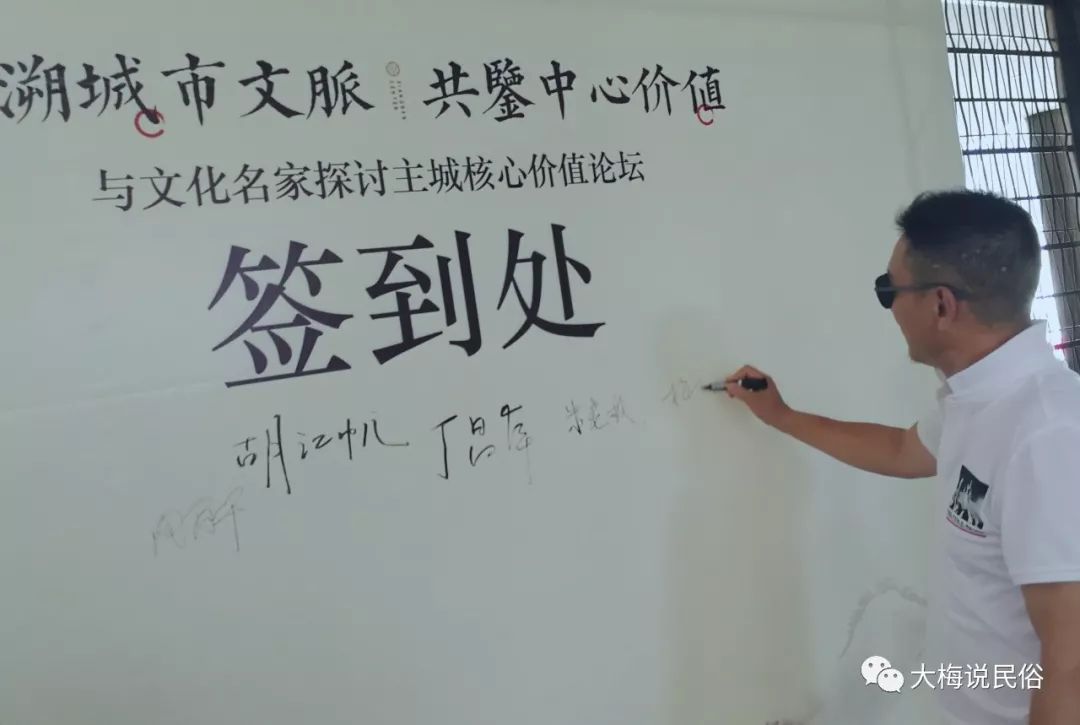 溯城市文脉 共鑒中心价值
与文化名家探讨主城核心价值论坛
签到处
胡江帆 丁昌年
大梅说民俗